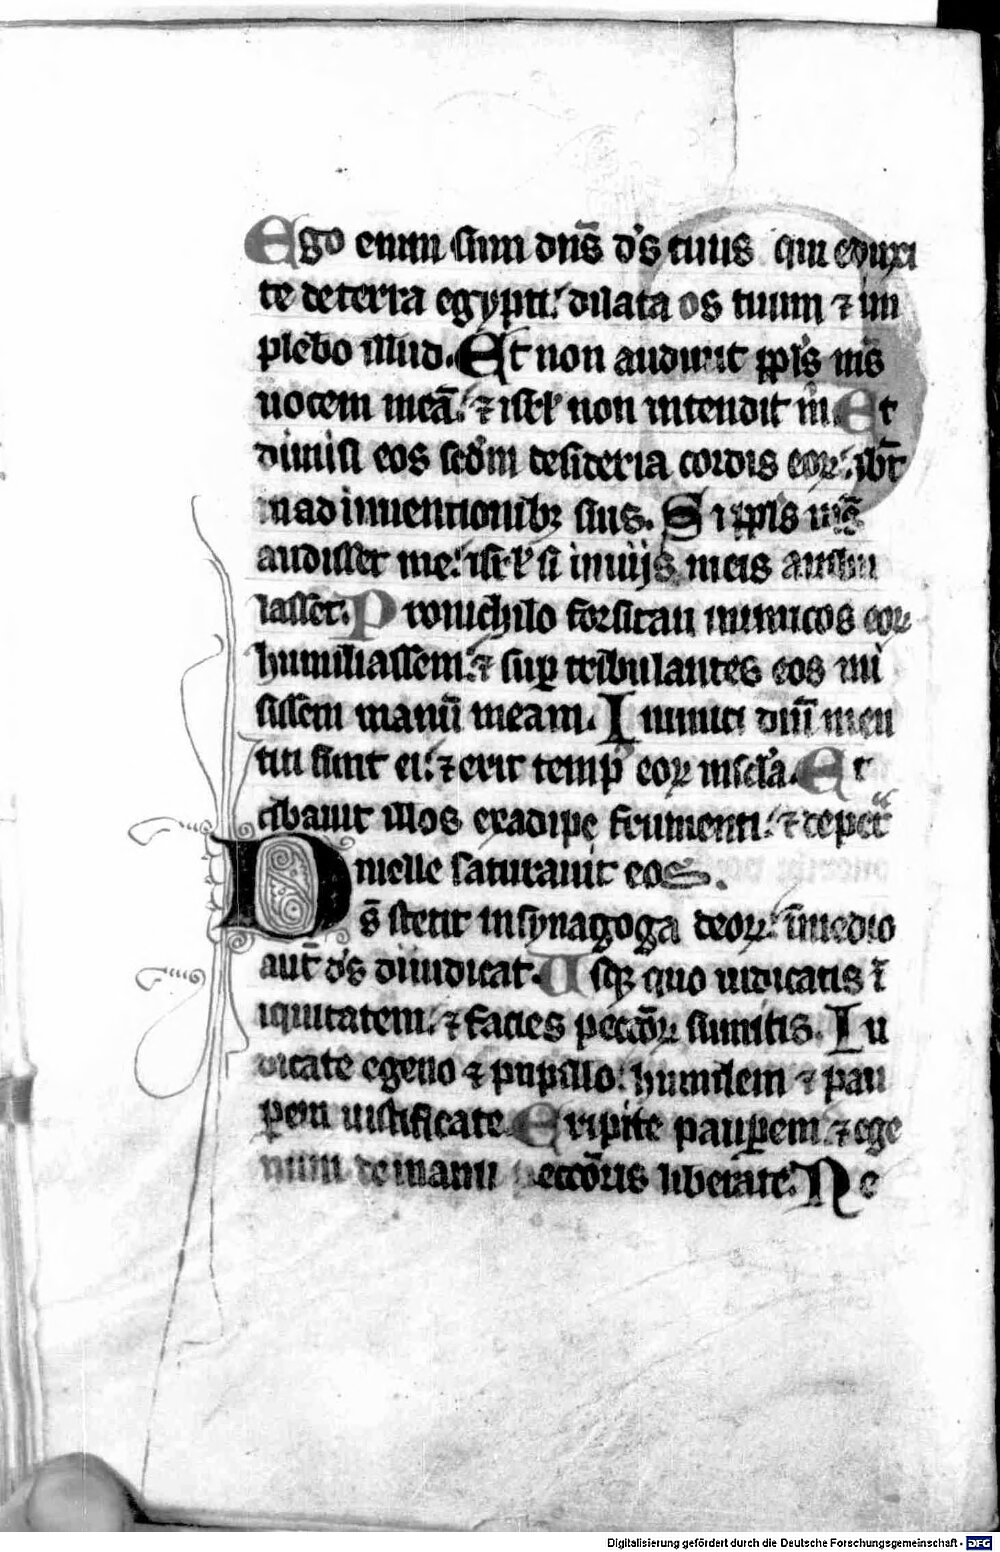 Ego enim sum dn̄s d's tuus qui eduxi
te de terra egypti: dilata os tuum ⁊ im
plebo illud. Et non audiuit pp̄ls m̄s
uocem meā: ⁊ isr̄l non intendit m̄. Et
dimisi eos scd̄m desideria cordis eoꝝ: ibt̄
in adinuentionibꝫ suis. Si pp̄ls m̄s
audisset me: isr̄l si in uijs meis ambu
lasset. Pro nichilo forsitan inimicos eoꝝ
humiliassem: ⁊ suꝑ tribulantes eos mi
sissem manū meam. Inimici dn̄i men
titi sunt ei: ⁊ erit temp' eoꝝ in scl̄a. Et
cibauit illos ex adipe frumenti: ⁊ de pet̄
melle saturauit eos.
Ds̄ stetit in synagoga deoꝝ: ī medio
aut̄ d's diiudicat. Usqꝫ quo iudicatis ī
iquitatem: ⁊ facies peccōꝝ sumitis. Iu
dicate egeno ⁊ pupillo: humilem ⁊ pau
ꝑem iustificate. Eripite pauꝑem: ⁊ ege
num de manu peccōris liberate. Ne
Digitalisierung gefördert durch die Deutsche Forschungsgemeinschaft - DFG